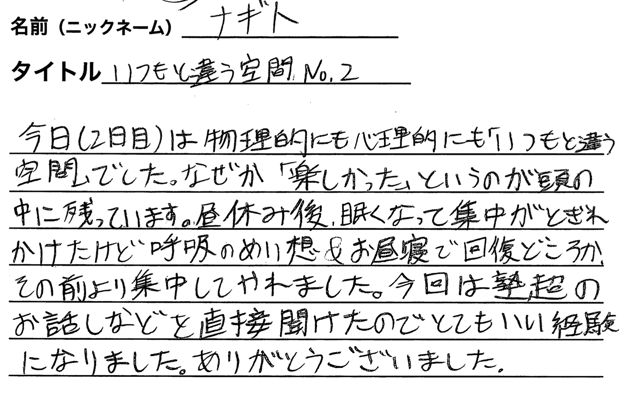 名前（ニックネーム） ナギト
タイトル いつもと違う空間 No.2
今日(2日目)は物理的にも心理的にも「いつもと違う
空間」でした。なぜか「楽しかった」というのが頭の
中に残っています。昼休み後、眠くなって集中がとぎれ
かけたけど呼吸のめい想&お昼寝で回復どころか、
その前より集中してやれました。今回は塾超の
お話しなどを直接聞けたのでとてもいい経験
になりました。ありがとうございました.